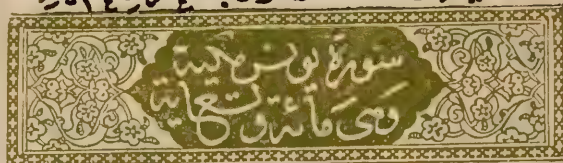 سورة يونس مكية
وهى مائة وتسع آية